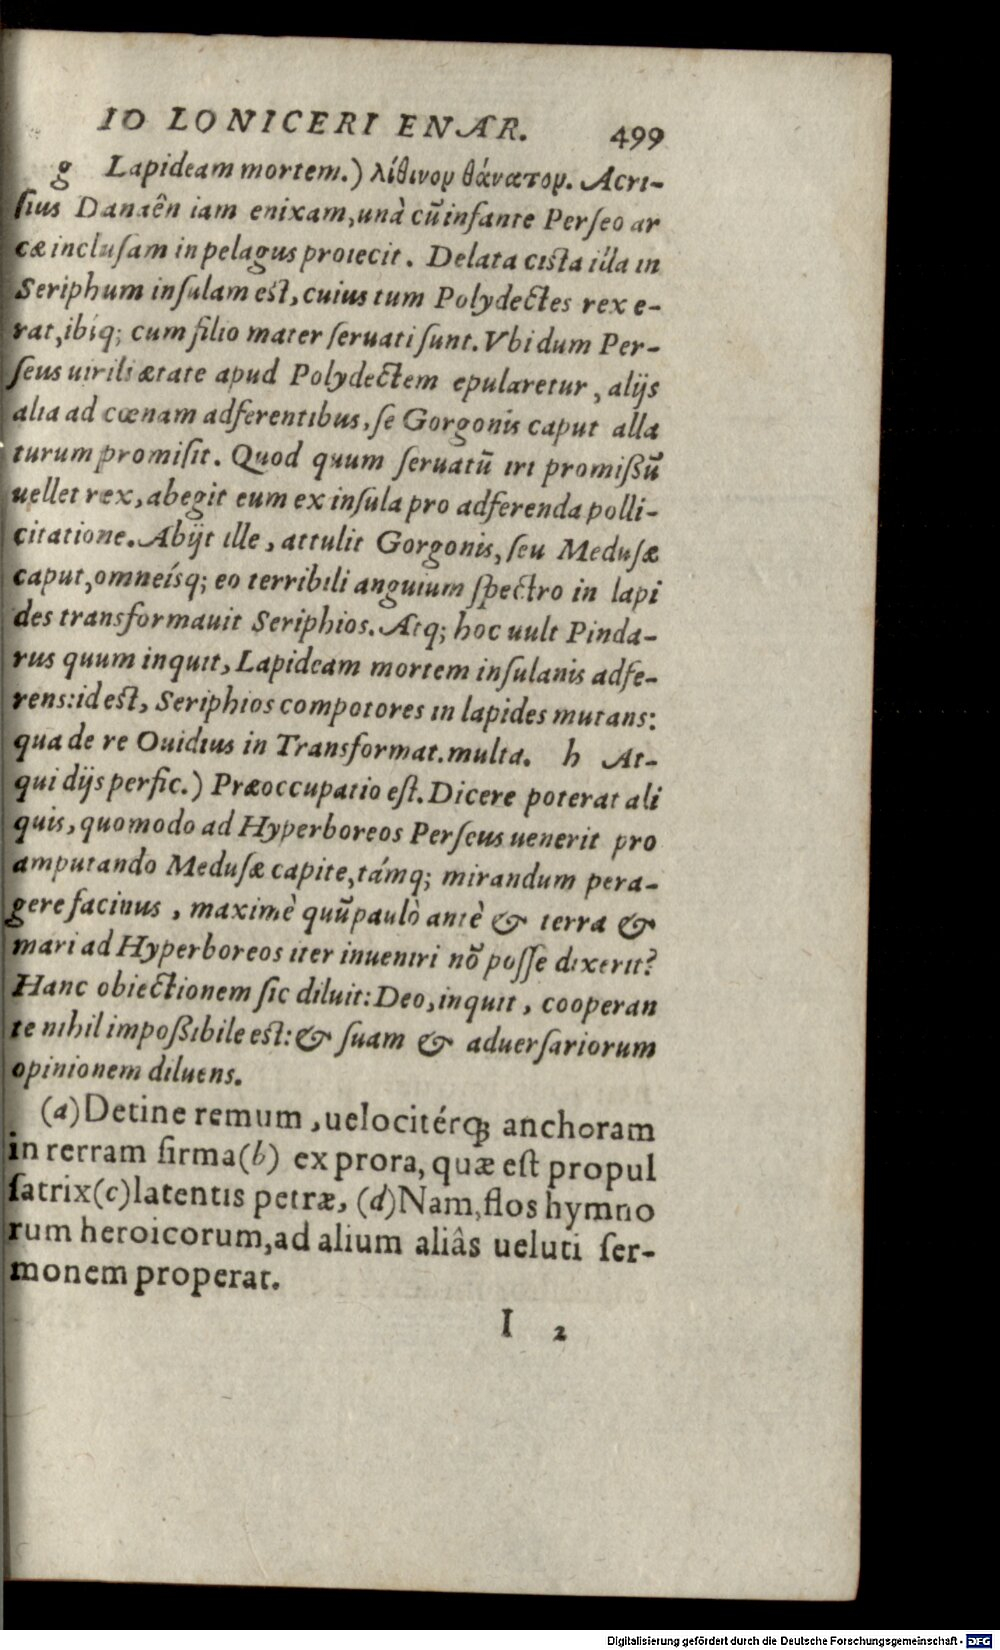 IO LONICERI ENAR. 499
g Lapideam mortem.) λίθινον θάνατον. Acri-
ſius Danaên iam enixam, unà cũ infante Perſeo ar
cæ incluſam in pelagus proiecit. Delata ciſta illa in
Seriphum inſulam eſt, cuius tum Polydectes rex e-
rat, ibíq; cum filio mater ſeruati ſunt. Vbi dum Per-
ſeus uirili ætate apud Polydectem epularetur, alijs
alia ad cœnam adferentibus, ſe Gorgonis caput alla
turum promiſit. Quod quum ſeruatũ iri promißũ
uellet rex, abegit eum ex inſula pro adferenda polli-
citatione. Abijt ille, attulit Gorgonis, ſeu Meduſæ
caput, omneísq; eo terribili anguium ſpectro in lapi
des transformauit Seriphios. Atq; hoc uult Pinda-
rus quum inquit, Lapideam mortem inſulanis adfe-
rens: id eſt, Seriphios compotores in lapides mutans:
qua de re Ouidius in Transformat. multa. h At-
qui dijs perfic.) Præoccupatio eſt. Dicere poterat ali
quis, quomodo ad Hyperboreos Perſeus uenerit pro
amputando Meduſæ capite, támq; mirandum pera-
gere facinus, maximè quũ paulò antè & terra &
mari ad Hyperboreos iter inueniri nõ poſſe dixerit?
Hanc obiectionem ſic diluit: Deo, inquit, cooperan
te nihil impoßibile eſt: & ſuam & aduerſariorum
opinionem diluens.
(a) Detine remum, uelocitérq; anchoram
in terram firma (b) ex prora, quæ eſt propul
ſatrix (c) latentis petræ, (d) Nam, flos hymno
rum heroicorum, ad alium aliâs ueluti ſer-
monem properat.
I 2
Digitalisierung gefördert durch die Deutsche Forschungsgemeinschaft - DFG